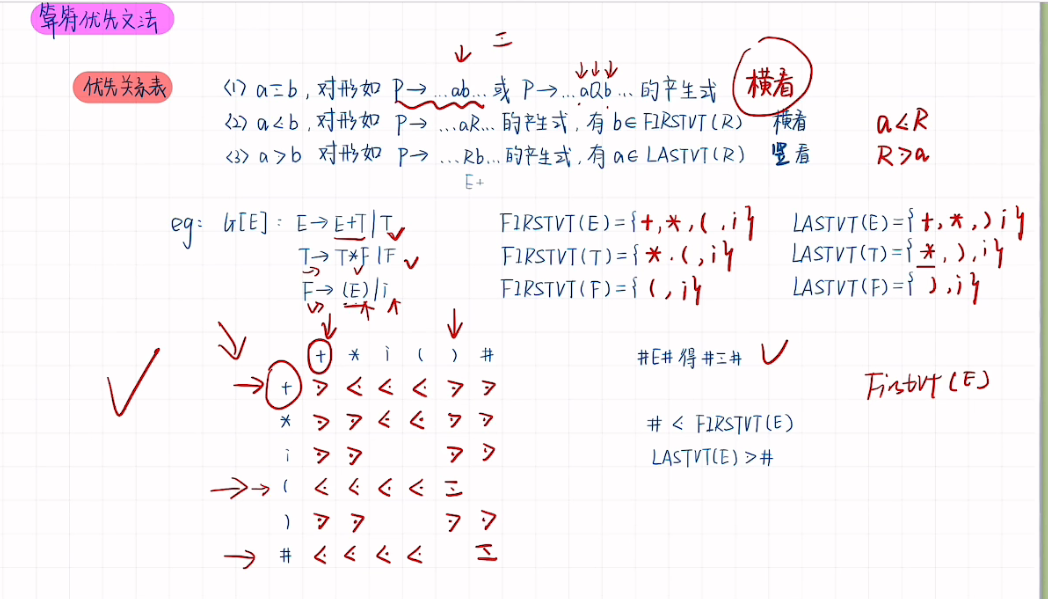 算符优先文法
优先关系表
(1) a≡b, 对形如 P→...ab... 或 P→...aQb...的产生式 横看
(2) a<b, 对形如 P→...aR...的产生式,有 b∈FIRSTVT(R) 横看 a⋖R
(3) a>b 对形如 P→...Rb...的产生式,有 a∈LASTVT(R) 竖看 R⋗a
E+
eg: G[E]: E→E+T|T FIRSTVT(E)={+,*,(,i} LASTVT(E)={+,*,),i}
T→T*F|F FIRSTVT(T)={*.(,i} LASTVT(T)={*,),i}
F→(E)|i FIRSTVT(F)={(,i} LASTVT(F)={),i}
+ * i ( ) # #E#得#≡#
+ ⋗ ⋖ ⋖ ⋖ ⋗ ⋗ FirstVT(E)
* ⋗ ⋗ ⋖ ⋖ ⋗ ⋗ # < FIRSTVT(E)
i ⋗ ⋗ ⋗ ⋗ LASTVT(E)>#
( ⋖ ⋖ ⋖ ⋖ ≡
) ⋗ ⋗ ⋗ ⋗
# ⋖ ⋖ ⋖ ⋖ ≡